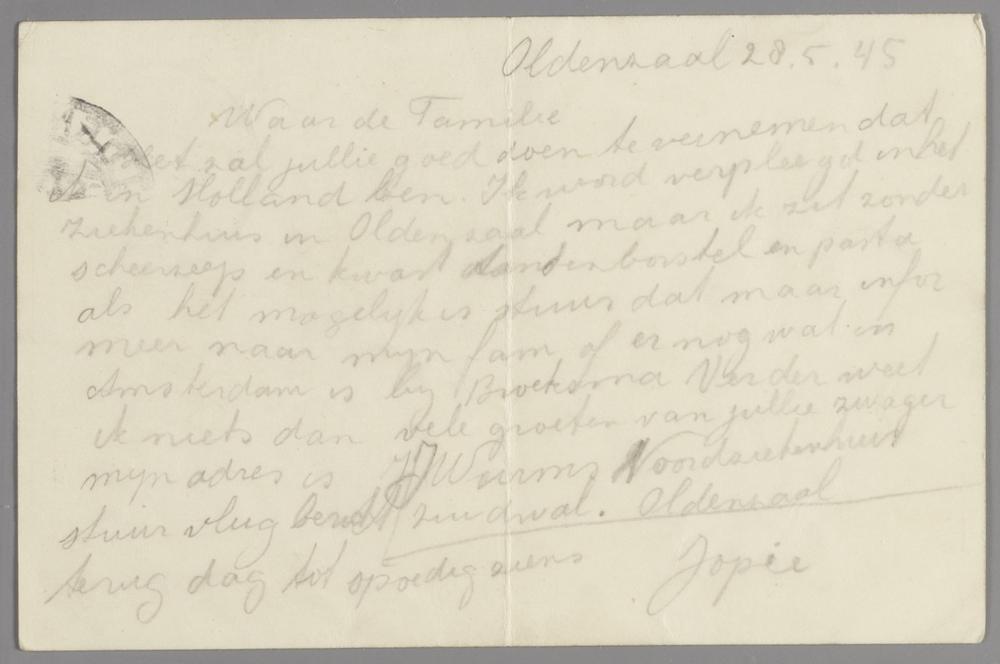 Oldenzaal 28.5.45
Waarde Familie
Het zal jullie goed doen te vernemen dat
in Holland ben. Ik word verpleegd in het
Ziekenhuis in Oldenzaal maar ik zit zonder
scheerzeep en kwast tandenborstel en pasta
als het mogelijk is stuur dat maar infor
meer naar mijn fam of er nog wat in
Amsterdam is bij Broeksma Verder weet
ik niets dan vele groeten van jullie zwager
mijn adres is J Wurms Noordziekenhuis
stuur vlug bericht zuidwal. Oldenzaal
terug dag tot spoedig ziens Jopie